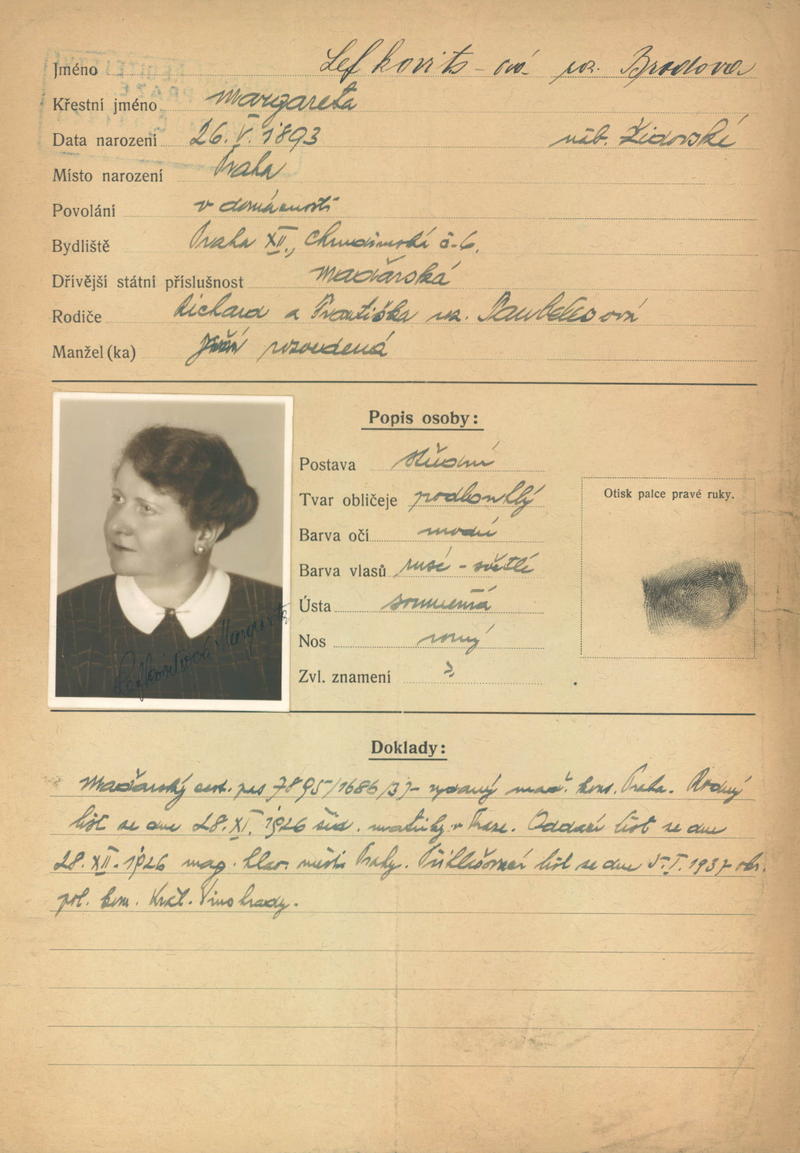 Jméno Lefkovits - ová roz. Brodova
Křestní jméno Margareta
Data narození 26. V. 1893 náb. židovské
Místo narození Praha
Povolání v domácnosti
Bydliště Praha XII., Chrudimská č. 6.
Dřívější státní příslušnost maďarská
Rodiče Richard a Františka roz.
Manžel(ka) rozvedená
Popis osoby:
Postava střední
Tvar obličeje podlouhlý
Barva očí modré
Barva vlasů rusé - světlé
Ústa souměrná
Nos rovný
Zvl. znamení
Otisk palce pravé ruky.
Lefkovitsová
Doklady:
Maďarský cest. pas 7895/1686/37 vydaný maď. kons. Praha. Rodný
list ze dne 28. XI. 1926 žid. matriky v Praze. Oddací list ze dne
28. XII. 1926 mag. hlav. města Prahy. list ze dne 5. I. 1937
pol. kom. Král. Vinohrady.